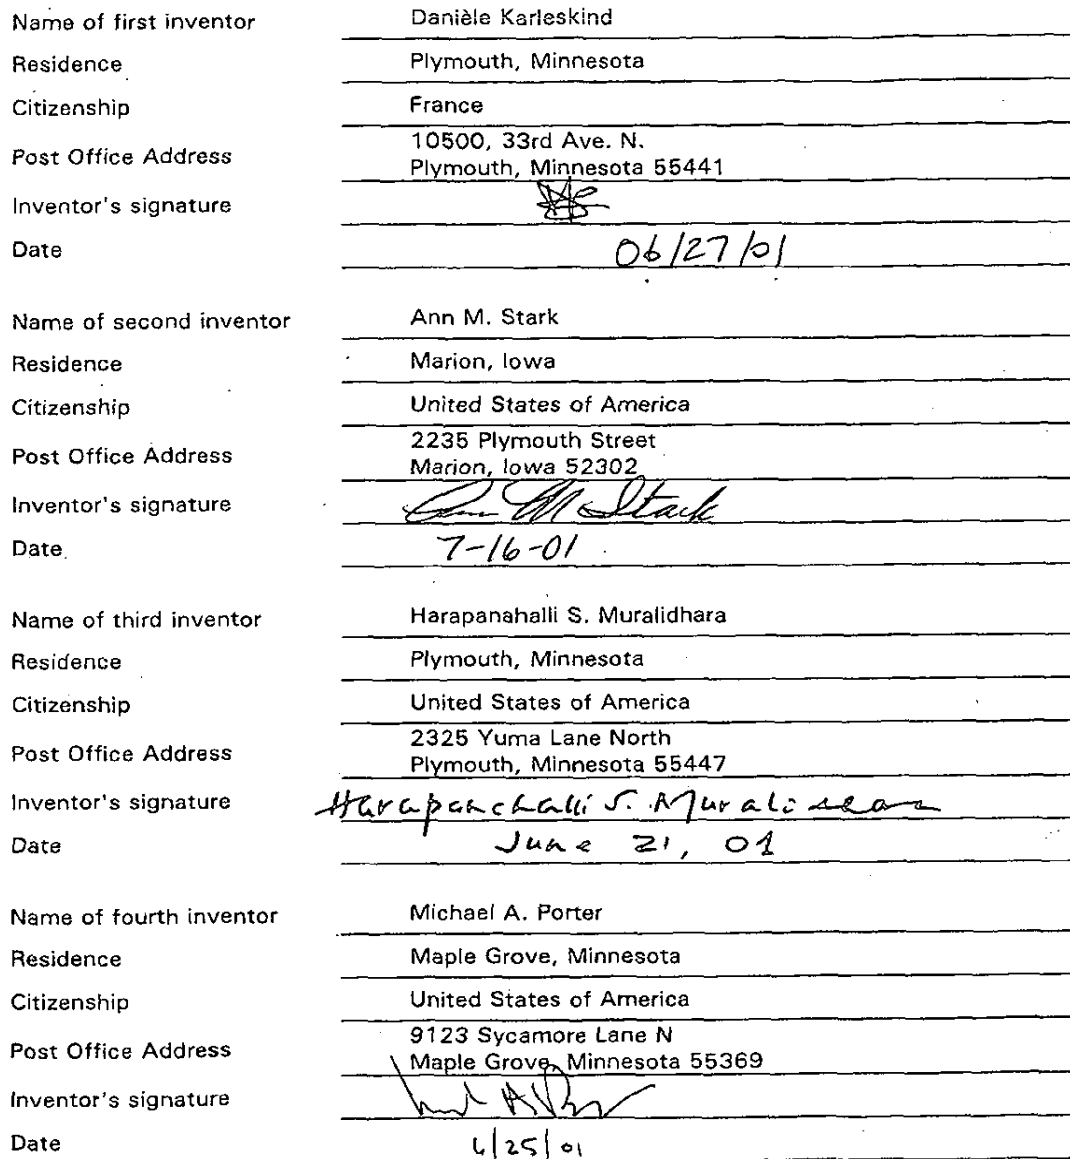 Name of first inventor Danièle Karleskind
Residence Plymouth, Minnesota
Citizenship France
Post Office Address 10500, 33rd Ave. N.
Plymouth, Minnesota 55441
Inventor's signature
Date 06/27/01
Name of second inventor Ann M. Stark
Residence Marion, Iowa
Citizenship United States of America
Post Office Address 2235 Plymouth Street
Marion, Iowa 52302
Inventor's signature Ann M Stark
Date 7-16-01
Name of third inventor Harapanahalli S. Muralidhara
Residence Plymouth, Minnesota
Citizenship United States of America
Post Office Address 2325 Yuma Lane North
Plymouth, Minnesota 55447
Inventor's signature Harapanahalli S. Muralidhara
Date June 21, 01
Name of fourth inventor Michael A. Porter
Residence Maple Grove, Minnesota
Citizenship United States of America
Post Office Address 9123 Sycamore Lane N
Maple Grove, Minnesota 55369
Inventor's signature
Date 6/25/01